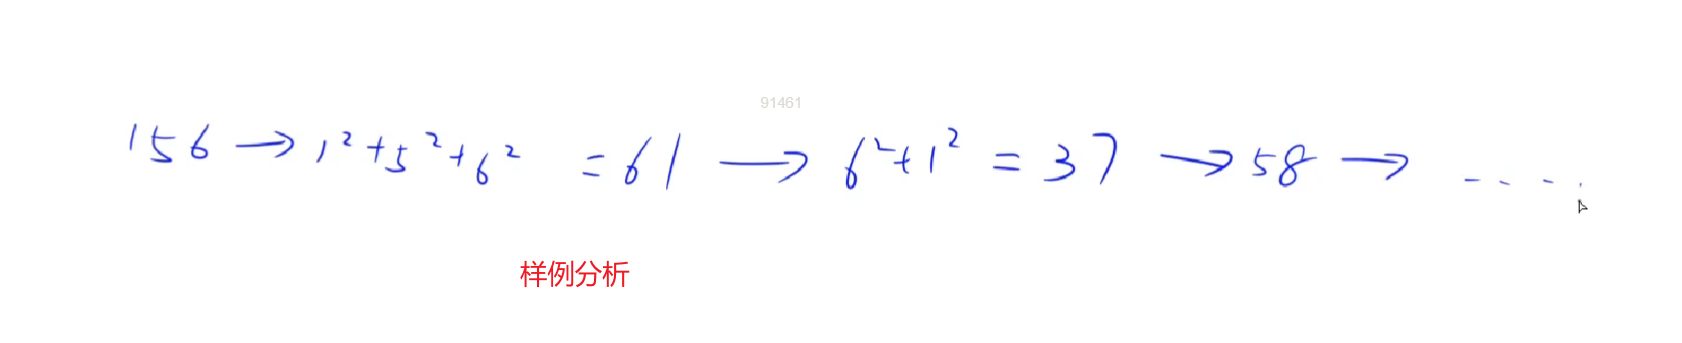 91461
156 → 1² + 5² + 6² = 61 → 6² + 1² = 37 → 58 → ....
样例分析